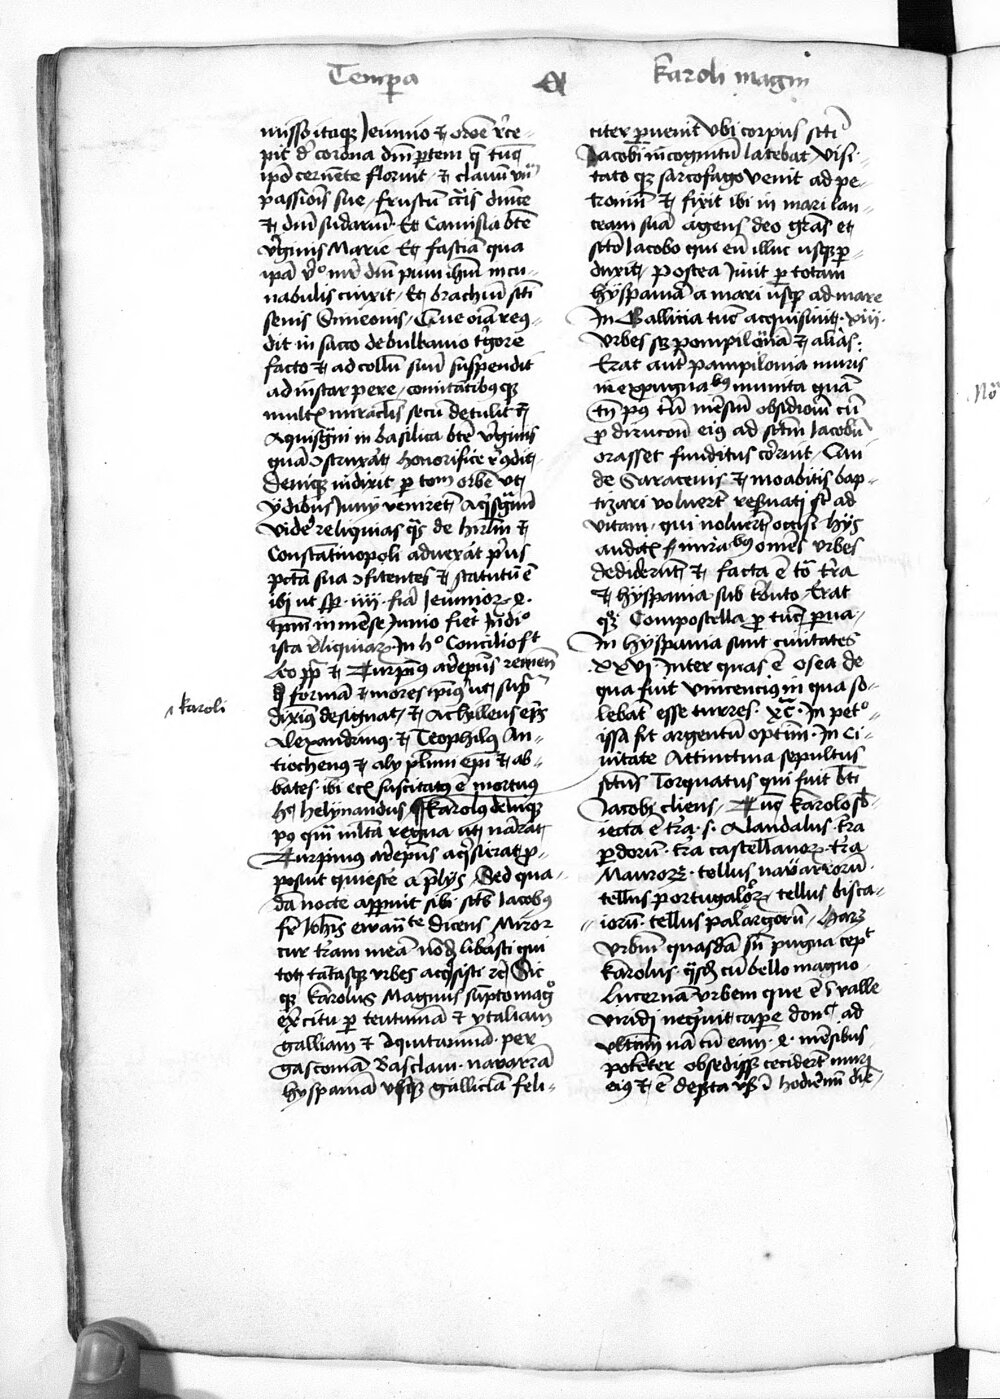 Tempa et karoli magni
misso itaqz Jeiunio et orōe rece-
pit de corona dni ptem q tūc
ipo cernēte floruit et clauū vnū
passionis sue frustū crucis dnice
et dni sudariū Et Camisiā bte
virginis Marie Et fasciam qua
ipā vo mr dni puerū ihm in cu-
nabulis cinxit Et brachiū sci
senis Simeonis Que oīa recō-
dit in sacco de bubalino tergore
facto et ad collū suū suspendit
ad instar pere comitātibus qz
multis miraclis secū detulit et
Aquisgni in basilica bte virginis
quā ostruxat honorifice recōdit
Deniqz indixit p totū orbē ut
ydibus Juny veniret Aqsgrani
videre reliquias qs de hirlm et
Constātinopoli aduexat prius
pcta sua ofitentes et statutū ē
ibi ut sp iiii feria Jeiunior
tpm in mēse Junio fieret Indō
ista reliquiar In ho Concilio ft
Leo pp et Turpinus arepus remen
q formā et mores ipius ut sup
dixim designat et Achylleus eps
Alexandrinus et Teophilus An-
tiochenus et aly plimi epi et ab-
bates ibi ecia suscitatus ē mortuus
hec helynandus Karolus deniqz
karoli
post qm mlta regna ut narrat
Turpinus arepus acqsierat p-
posuit quiescere a prelys Sed qua-
dā nocte apparuit sibi scus Jacobus
fr Johis ewangte dicens Miror
cur trām meā nōdū liberasti qui
tot tātasqz vrbes acqsisti etc Sic
qz karolus Magnus sūpto magno
exercitu p teutuniā et ytaliam
galliam et Aquitanniā per
gasconiā Basclam nauarrā
hyspaniā vsqz galliciā feli-
citer puenit Vbi corpus sci
Jacobi incognitū latebat Visi-
tato qz sarcofago venit ad pe-
tronū et fixit ibi in mari lan-
ceam suā agens deo gras et
sco Jacobo qui eū illuc usqz p-
duxit Postea Juit p totam
hyspaniā a mari usqz ad mare
In Gallicia tūc acquisiuit xiii
vrbes sz pompiloniā et alias
Erat aut pampilonia muris
inexpugnabus munita quam
tn post triū mēsiū obsidionē cū
p dirucōe eius ad scm Jacobū
orasset funditus corruit Qui
de Saracenis et moabitis bap-
tizari voluert reseruati st ad
vitam qui noluert occisi hys
auditis mirabus omēs vrbes
dediderūt et facta ē tota terra
et hyspania sub tributo Erat
qz Compostella p tūc parua
In hyspania sunt ciuitates
xxvi Inter quas ē osea de
qua fuit vincencius in qua so-
lebāt esse turres xc In peto
issa fit argentū optimū In Ci-
uitate Attinctina sepultus
scus Torquatus qui fuit bti
Jacobi cliens Tūc karolo sb-
iecta ē tra s Alandalus tra
pdorū tra castellanorz tra
Maurorz tellus nauarrorū
tellus portugalorz tellus bisca-
iorū tellus palargorū Harz
vrbiū quasdā sn pugna cept
karolus qsdā cū bello magno
Lucernā vrbem que ē ī valle
viridi nequit capere donec ad
vltimū nā cū eam mēsibus
potēter obsedisset ceciderūt muri
eius et ē deserta vsqz ī hodiernū diē
No